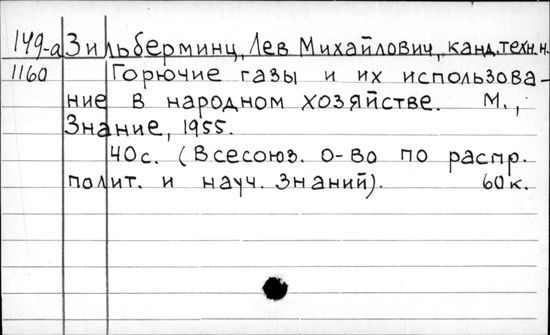 149-а Зильберминц, Лев Михайлович, канд.техн.н.
1160 Горючие газы и их использова-
ние в народном хозяйстве. М.,
Знание, 1955.
40с. (Всесоюз. о-во по распр.
полит. и науч. Знаний). 60к.